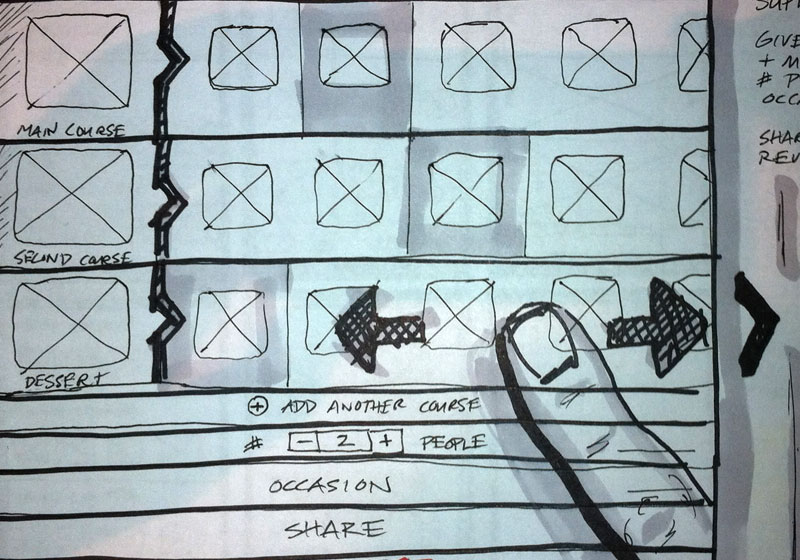 MAIN COURSE
SECOND COURSE
DESSERT
⊕ ADD ANOTHER COURSE
# - 2 + PEOPLE
OCCASION
SHARE
GIVE
+ M
# P
OCC
SHAR
REV